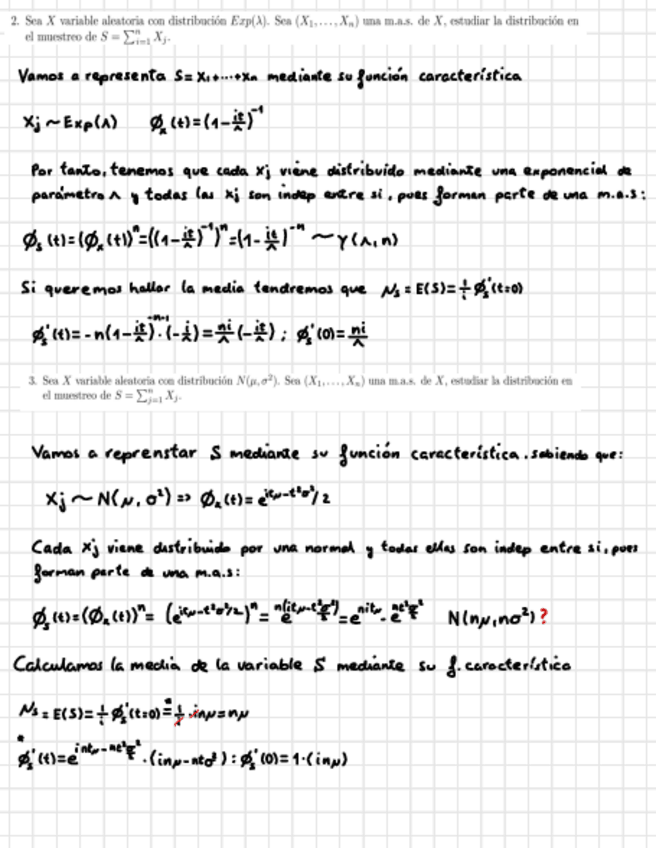 2. Sea X variable aleatoria con distribución Exp(λ). Sea (X₁, . . . , Xₙ) una m.a.s. de X, estudiar la distribución en
el muestreo de S = ∑ⁿᵢ₌₁ Xⱼ.
Vamos a representa S= X₁+····+Xn mediante su función característica
Xj ~ Exp(λ) ϕₓ(t) = (1-it/λ)⁻¹
Por tanto, tenemos que cada Xj viene distribuido mediante una exponencial de
parámetro λ y todas las Xj son indep entre si, pues forman parte de una m.a.s:
ϕₛ(t)=(ϕₓ(t))ⁿ=((1-it/λ)⁻¹)ⁿ=(1-it/λ)⁻ⁿ ~ γ(λ,n)
Si queremos hallar la media tendremos que μₛ = E(S)= 1/i ϕₛ'(t=0)
ϕₛ'(t)=-n(1-it/λ)⁻ⁿ⁻¹·(-i/λ)= ni/λ (-it/λ) ; ϕₛ'(0)= ni/λ
3. Sea X variable aleatoria con distribución N(μ, σ²). Sea (X₁, . . . , Xₙ) una m.a.s. de X, estudiar la distribución en
el muestreo de S = ∑ⁿⱼ₌₁ Xⱼ.
Vamos a reprenstar S mediante su función característica. sabiendo que:
Xj ~ N(μ, σ²) => ϕₓ(t)= e^(itμ-t²σ²/2)
Cada Xj viene distribuido por una normal y todas ellas son indep entre si, pues
forman parte de una m.a.s:
ϕₛ(t)=(ϕₓ(t))ⁿ= (e^(itμ-t²σ²/2))ⁿ = e^(n(itμ-t²σ²/2)) = e^(nitμ)·e^(-nt²σ²/2) N(nμ,nσ²)?
Calculamos la media de la variable S mediante su f. característica
μₛ = E(S)= 1/i ϕₛ'(t=0) =* 1/i ·inμ=nμ
* ϕₛ'(t)=e^(intμ-nt²σ²/2) ·(inμ-ntσ²) : ϕₛ'(0)= 1·(inμ)